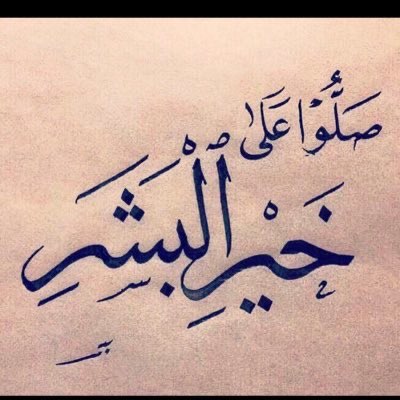 صَلُّوْا عَلَىٰ
خَيْرِ الْبَشَرِ